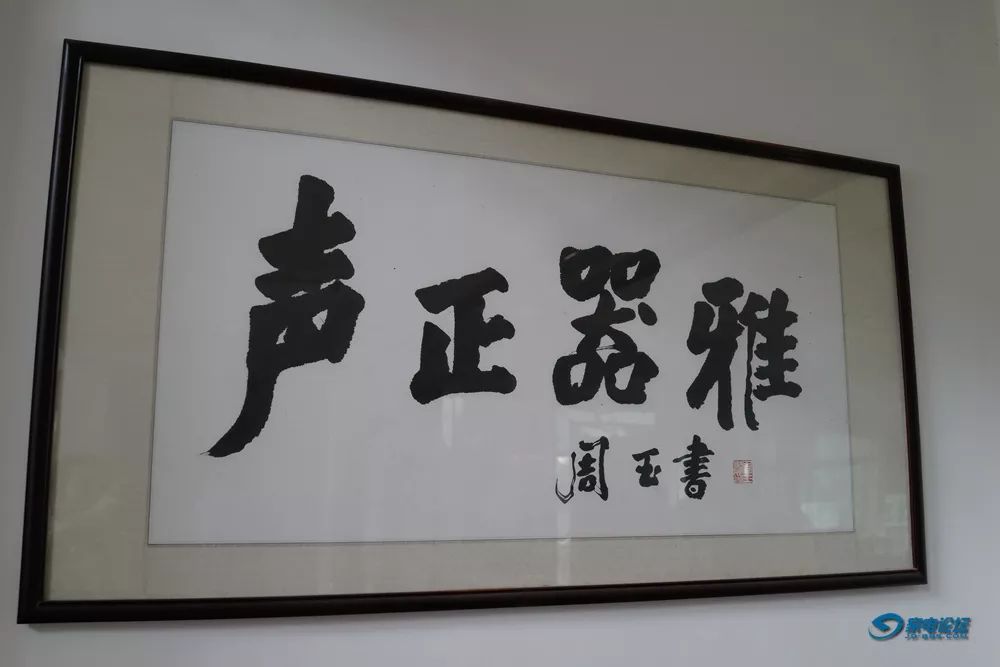 声正器雅
周玉書
家电论坛